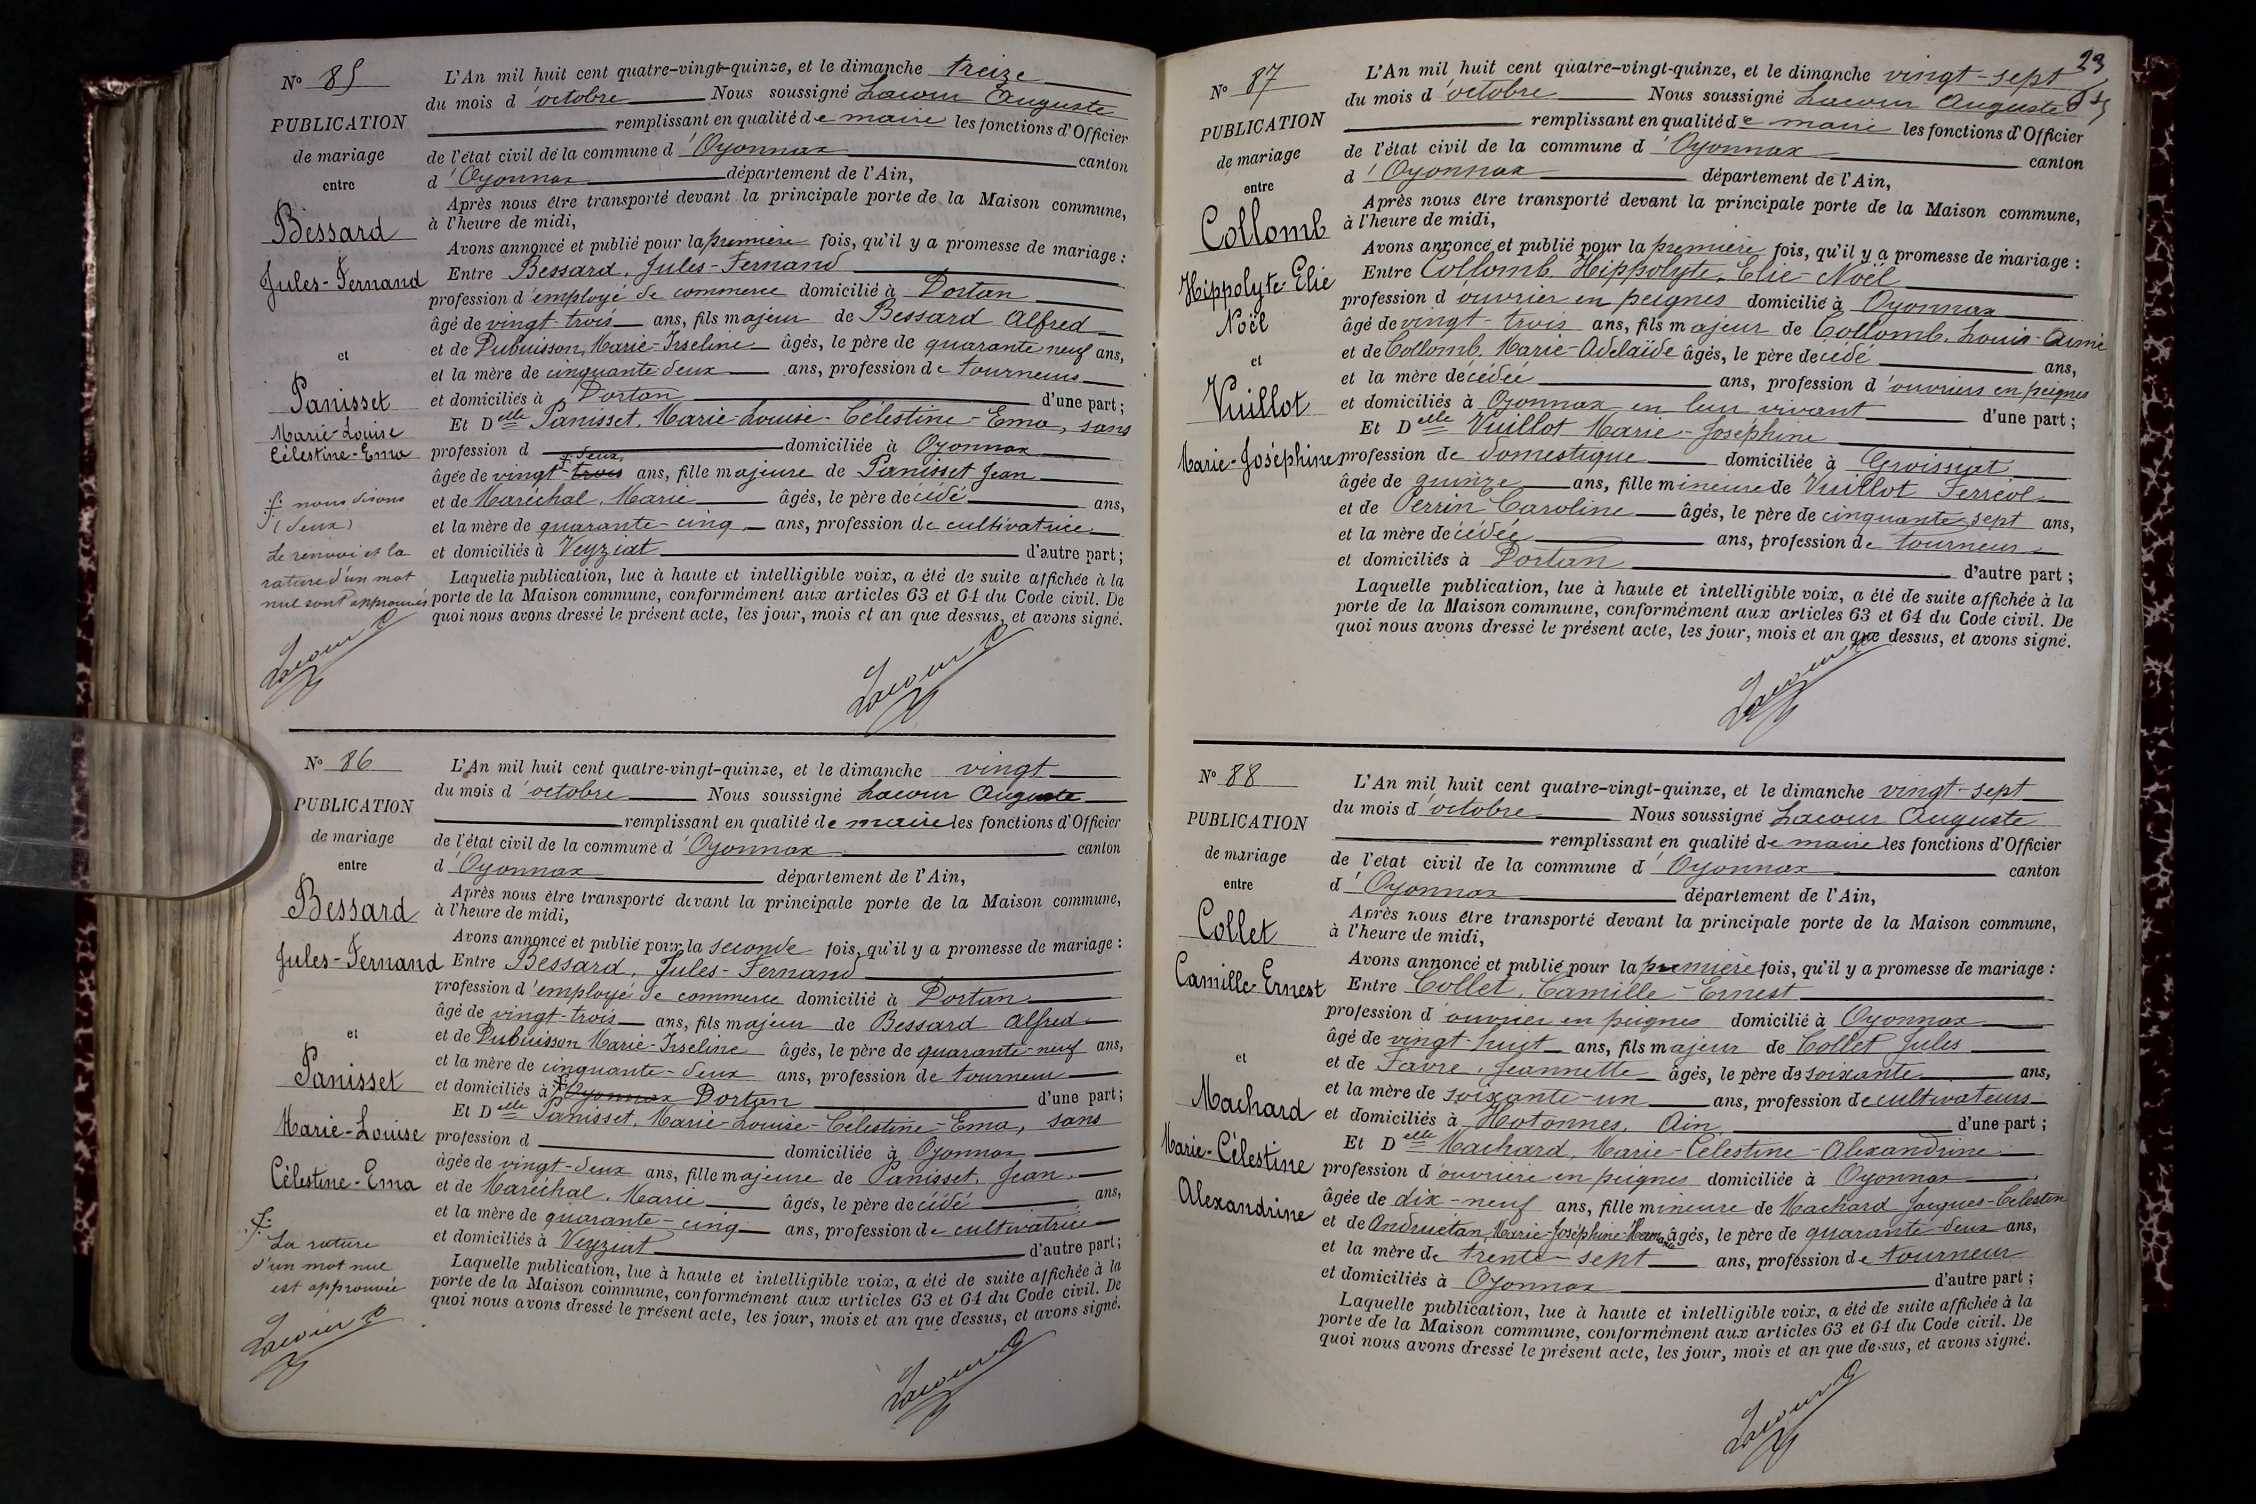 Nº 85
PUBLICATION
de mariage
entre
Bessard
Jules-Fernand
et
Panisset
Marie-Louise
Célestine-Ema
nous disons
(deux)
Le renvoi et la
rature d'un mot
nul sont approuvés
Lacour A
L'An mil huit cent quatre-vingt-quinze, et le dimanche treize
du mois d'octobre Nous soussigné Lacour Auguste
remplissant en qualité de maire les fonctions d'Officier
de l'état civil de la commune d'Oyonnax canton
d'Oyonnax département de l'Ain,
Après nous être transporté devant la principale porte de la Maison commune,
à l'heure de midi,
Avons annoncé et publié pour la première fois, qu'il y a promesse de mariage :
Entre Bessard, Jules-Fernand
profession d'employé de commerce domicilié à Dortan
âgé de vingt-trois ans, fils majeur de Bessard Alfred
et de Dubuisson, Marie-Irseline âgés, le père de quarante neuf ans,
et la mère de cinquante deux ans, profession de tourneurs
et domiciliés à Dortan d'une part ;
Et Delle Panisset, Marie-Louise-Célestine-Ema, sans
profession d domiciliée à Oyonnax
deux
âgée de vingt-trois ans, fille majeure de Panisset Jean
et de Maréchal, Marie âgés, le père décédé ans,
et la mère de quarante-cinq ans, profession de cultivatrice
et domiciliés à Veyziat d'autre part ;
Laquelle publication, lue à haute et intelligible voix, a été de suite affichée à la
porte de la Maison commune, conformément aux articles 63 et 64 du Code civil. De
quoi nous avons dressé le présent acte, les jour, mois et an que dessus, et avons signé.
Lacour A
Nº 86
PUBLICATION
de mariage
entre
Bessard
Jules-Fernand
et
Panisset
Marie-Louise
Célestine-Ema
La rature
d'un mot nul
est approuvée
Lacour A
L'An mil huit cent quatre-vingt-quinze, et le dimanche vingt
du mois d'octobre Nous soussigné Lacour Auguste
remplissant en qualité de maire les fonctions d'Officier
de l'état civil de la commune d'Oyonnax canton
d'Oyonnax département de l'Ain,
Après nous être transporté devant la principale porte de la Maison commune,
à l'heure de midi,
Avons annoncé et publié pour la seconde fois, qu'il y a promesse de mariage :
Entre Bessard, Jules-Fernand
profession d'employé de commerce domicilié à Dortan
âgé de vingt-trois ans, fils majeur de Bessard Alfred
et de Dubuisson Marie-Irseline âgés, le père de quarante-neuf ans,
et la mère de cinquante-deux ans, profession de tourneur
et domiciliés à Oyonnax Dortan d'une part ;
Et Delle Panisset, Marie-Louise-Célestine-Ema, sans
profession d domiciliée à Oyonnax
âgée de vingt-deux ans, fille majeure de Panisset, Jean
et de Maréchal, Marie âgés, le père décédé ans,
et la mère de quarante-cinq ans, profession de cultivatrice
et domiciliés à Veyziat d'autre part ;
Laquelle publication, lue à haute et intelligible voix, a été de suite affichée à la
porte de la Maison commune, conformément aux articles 63 et 64 du Code civil. De
quoi nous avons dressé le présent acte, les jour, mois et an que dessus, et avons signé.
Lacour A
23
Nº 87
PUBLICATION
de mariage
entre
Collomb
Hippolyte-Elie
Noël
et
Vuillot
Marie-Joséphine
L'An mil huit cent quatre-vingt-quinze, et le dimanche vingt-sept
du mois d'octobre Nous soussigné Lacour Auguste
remplissant en qualité de maire les fonctions d'Officier
de l'état civil de la commune d'Oyonnax canton
d'Oyonnax département de l'Ain,
Après nous être transporté devant la principale porte de la Maison commune,
à l'heure de midi,
Avons annoncé et publié pour la première fois, qu'il y a promesse de mariage :
Entre Collomb, Hippolyte, Elie-Noël
profession d'ouvrier en peignes domicilié à Oyonnax
âgé de vingt-trois ans, fils majeur de Collomb, Louis-Aimé
et de Collomb, Marie-Adelaïde âgés, le père décédé ans,
et la mère décédée ans, profession d'ouvriers en peignes
et domiciliés à Oyonnax en leur vivant d'une part ;
Et Delle Vuillot Marie-Joséphine
profession de domestique domiciliée à Groissiat
âgée de quinze ans, fille mineure de Vuillot Ferréol
et de Perrin Caroline âgés, le père de cinquante sept ans,
et la mère décédée ans, profession de tourneur
et domiciliés à Dortan d'autre part ;
Laquelle publication, lue à haute et intelligible voix, a été de suite affichée à la
porte de la Maison commune, conformément aux articles 63 et 64 du Code civil. De
quoi nous avons dressé le présent acte, les jour, mois et an que dessus, et avons signé.
Lacour A
Nº 88
PUBLICATION
de mariage
entre
Collet
Camille-Ernest
et
Machard
Marie-Célestine
Alexandrine
L'An mil huit cent quatre-vingt-quinze, et le dimanche vingt-sept
du mois d'octobre Nous soussigné Lacour Auguste
remplissant en qualité de maire les fonctions d'Officier
de l'état civil de la commune d'Oyonnax canton
d'Oyonnax département de l'Ain,
Après nous être transporté devant la principale porte de la Maison commune,
à l'heure de midi,
Avons annoncé et publié pour la première fois, qu'il y a promesse de mariage :
Entre Collet, Camille-Ernest
profession d'ouvrier en peignes domicilié à Oyonnax
âgé de vingt-huit ans, fils majeur de Collet Jules
et de Favre, Jeannette âgés, le père de soixante ans,
et la mère de soixante-un ans, profession de cultivateurs
et domiciliés à Hotonnes, Ain d'une part ;
Et Delle Machard, Marie-Célestine-Alexandrine
profession d'ouvrière en peignes domiciliée à Oyonnax
âgée de dix-neuf ans, fille mineure de Machard Jacques-Célestin
et de Andruétan, Marie-Joséphine âgés, le père de quarante-deux ans,
et la mère de trente-sept ans, profession de tourneur
et domiciliés à Oyonnax d'autre part ;
Laquelle publication, lue à haute et intelligible voix, a été de suite affichée à la
porte de la Maison commune, conformément aux articles 63 et 64 du Code civil. De
quoi nous avons dressé le présent acte, les jour, mois et an que dessus, et avons signé.
Lacour A